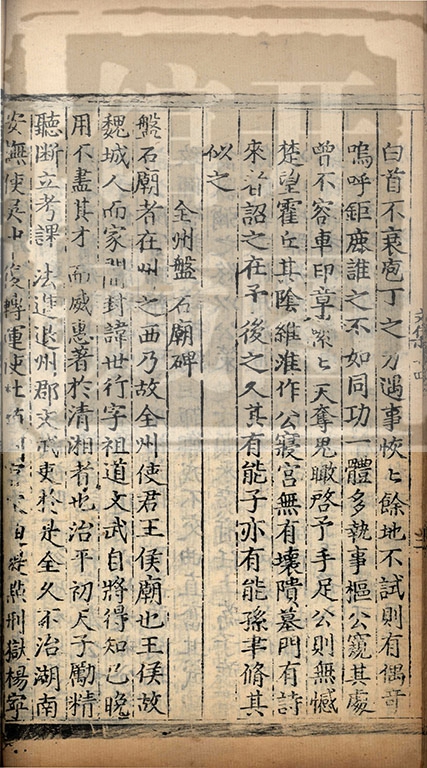 白首不衰庖丁之刀遇事恢〻餘地不試則有偶奇
嗚呼鉅鹿誰之不如同功一體多執事樞公窺其處
曾不容車印章纍〻天奪鬼瞰啓予手足公則無憾
楚望霍丘其陰維淮作公寢宮無有壞隤墓門有詩
來者詔之在予後之久其有能子亦有能孫聿脩其
似之
全州盤石廟碑
盤石廟者在州之西乃故全州使君王侯廟也王侯故
魏城人而家開封諱世行字祖道文武自將得知已晚
用不盡其才而威惠著於清湘者也治平初天子勵精
聽斷立考課法進退州郡文武吏於是全久不治湖南
安撫使吳中復轉運使杜提點刑獄楊寧